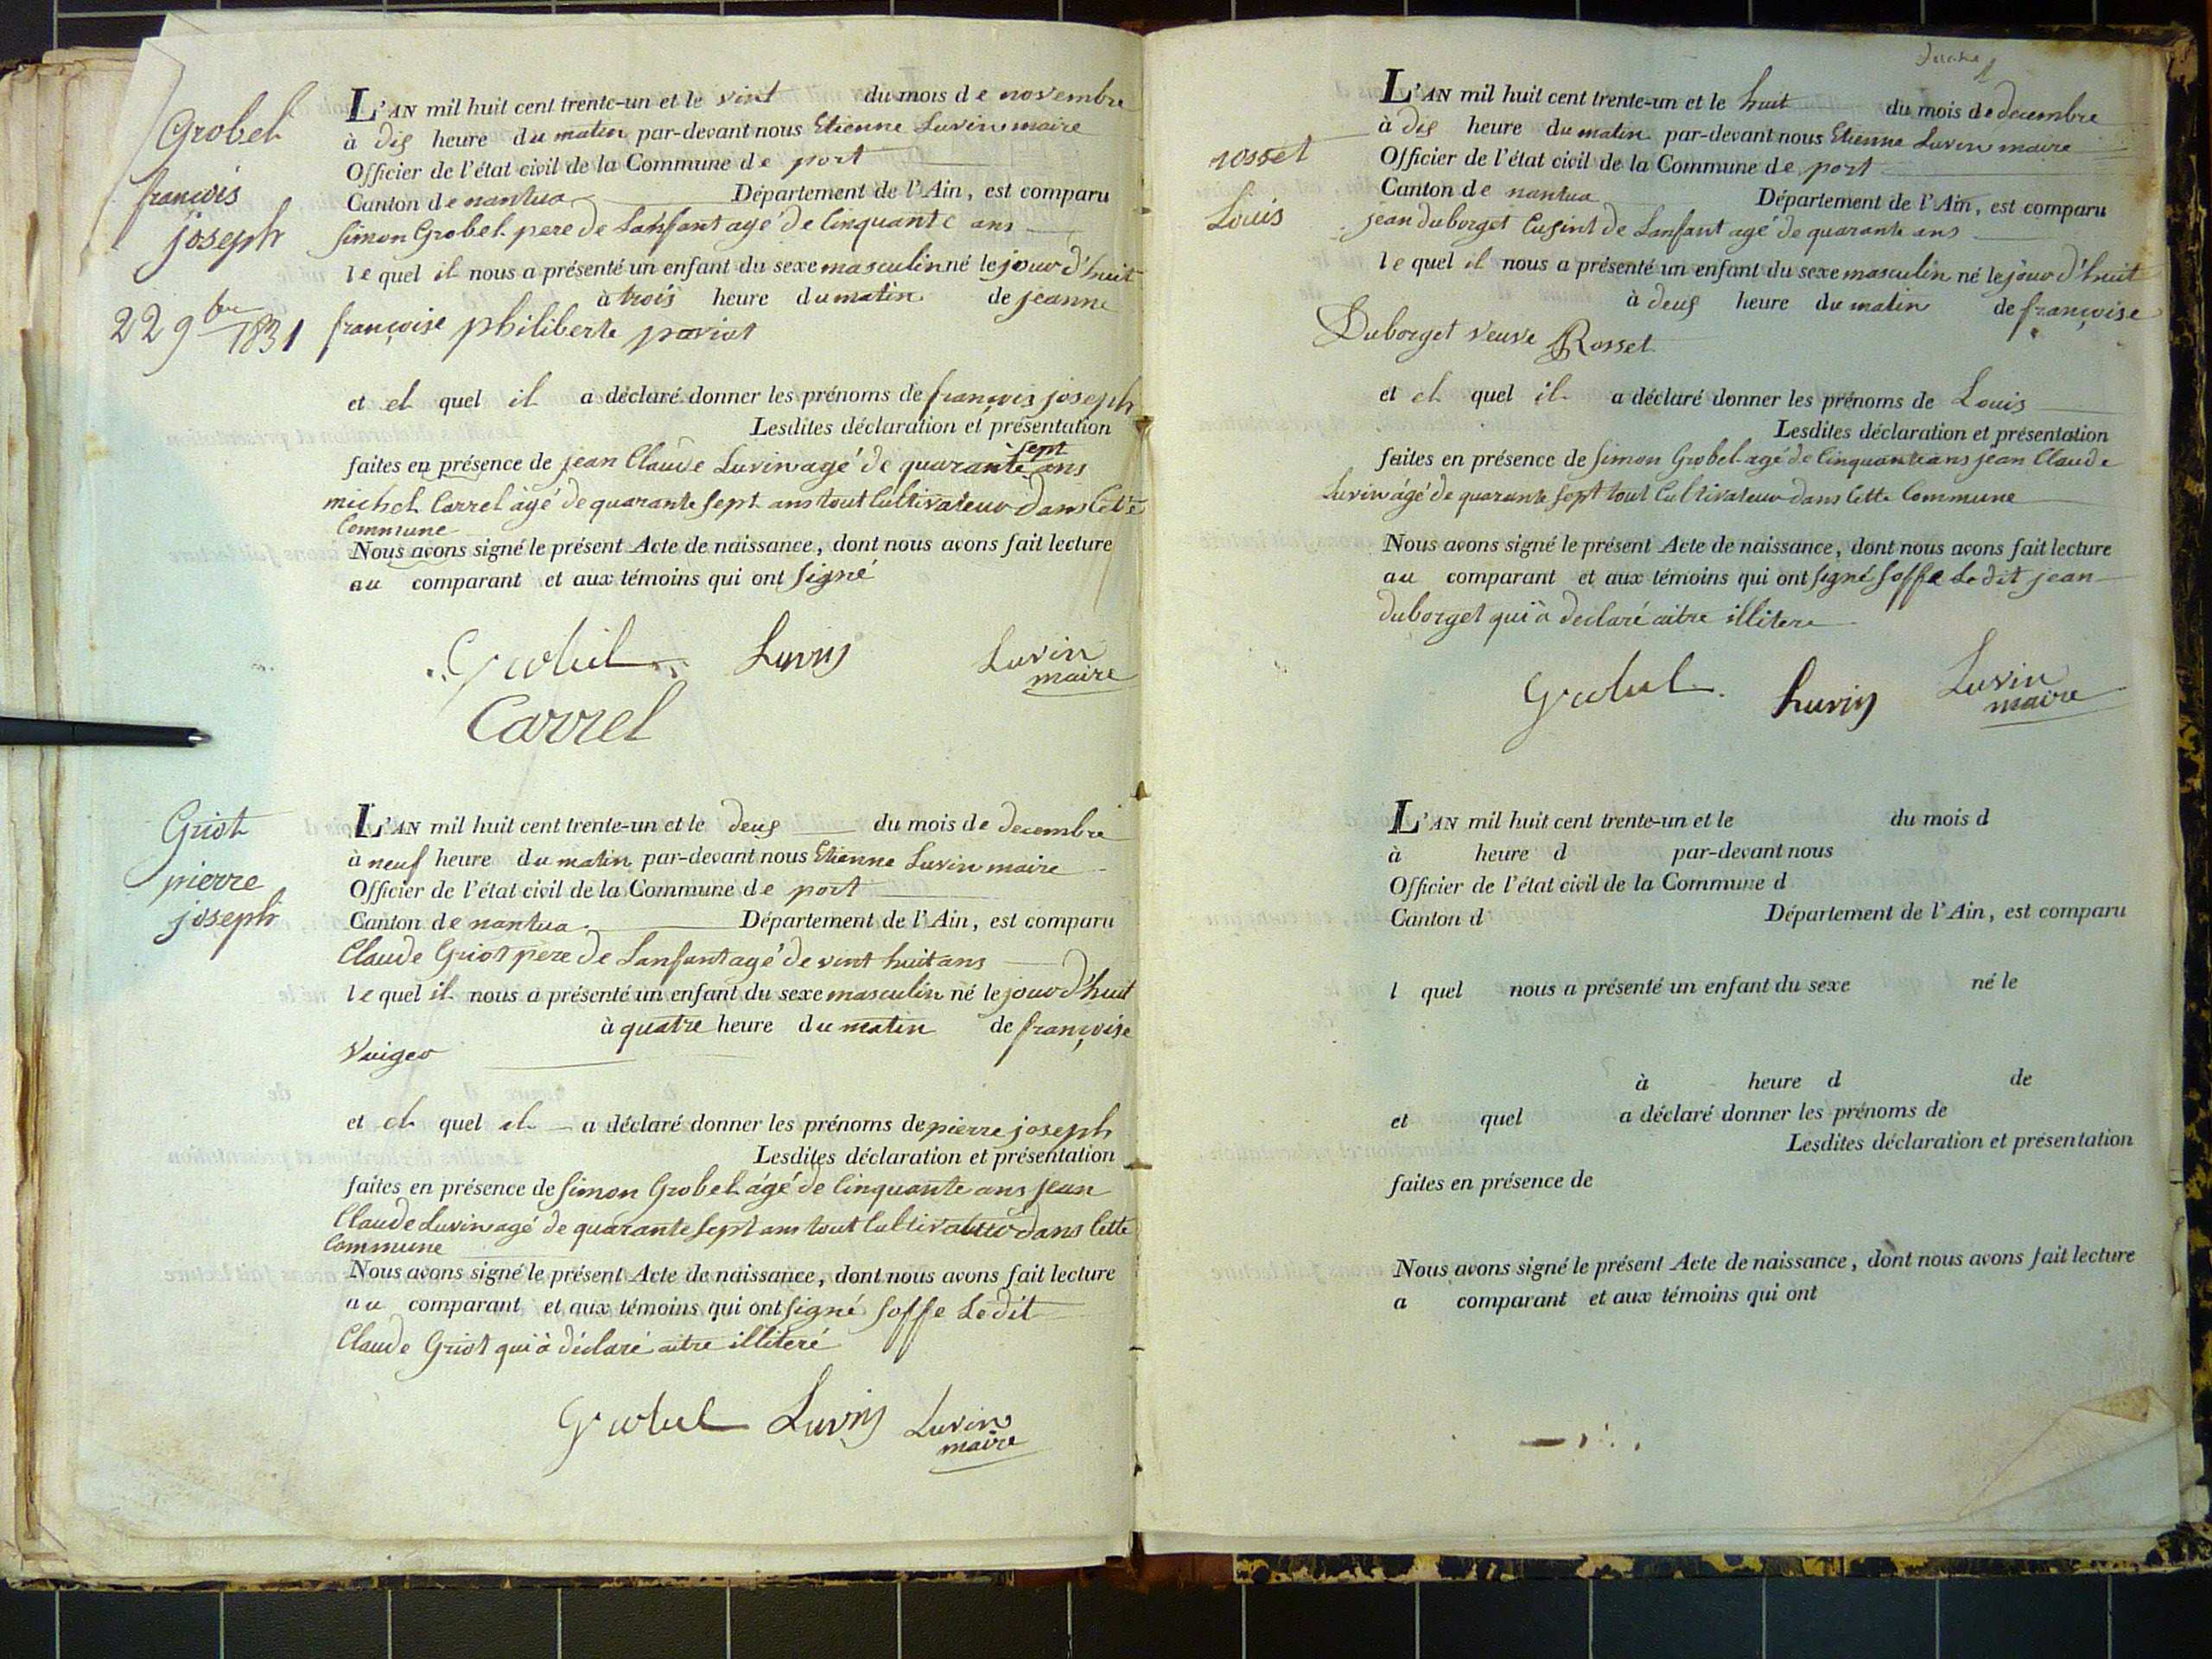 Grobel
françois
joseph
22 9bre 1831
L'AN mil huit cent trente-un et le vint du mois de novembre
à dis heure du matin par-devant nous Etienne Luvin maire
Officier de l'état civil de la Commune de port
Canton de nantua Département de l'Ain, est comparu
Simon Grobel pere de Lanfant agé de Cinquante ans
lequel il nous a présenté un enfant du sexe masculin né le jour d'huit
à trois heure du matin de jeanne
françoise philiberte
et el quel il a déclaré donner les prénoms de françois joseph
Lesdites déclaration et présentation
faites en présence de jean Claude Luvin agé de quarante sept ans
michel Carrel àgé de quarante sept ans tout Cultivateur dans Cette
Commune
Nous avons signé le présent Acte de naissance, dont nous avons fait lecture
au comparant et aux témoins qui ont signé
Grobel Luvin Luvin
maire
Carrel
Griot
pierre
joseph
L'AN mil huit cent trente-un et le deus du mois de decembre
à neuf heure du matin par-devant nous Etienne Luvin maire
Officier de l'état civil de la Commune de port
Canton de nantua Département de l'Ain, est comparu
Claude Griot père de Lanfant agé de vint huit ans
lequel il nous a présenté un enfant du sexe masculin né le jour d'huit
à quatre heure du matin de françoise
et el quel il a déclaré donner les prénoms de pierre joseph
Lesdites déclaration et présentation
faites en présence de Simon Grobel àgé de Cinquante ans jean
Claude Luvin agé de quarante sept ans tout Cultivateur dans Cette
Commune
Nous avons signé le présent Acte de naissance, dont nous avons fait lecture
au comparant et aux témoins qui ont signé soffe Le dit
Claude Griot qui à déclaré aitre illiteré
Grobel Luvin Luvin
maire
rosset
Louis
L'AN mil huit cent trente-un et le huit du mois de decembre
à dis heure du matin par-devant nous Etienne Luvin maire
Officier de l'état civil de la Commune de port
Canton de nantua Département de l'Ain, est comparu
jean duborget Cusint de Lanfant agé de quarante ans
lequel il nous a présenté un enfant du sexe masculin né le jour d'huit
à deus heure du matin de françoise
Duborget veuve Rosset
et el quel il a déclaré donner les prénoms de Louis
Lesdites déclaration et présentation
faites en présence de Simon Grobel agé de Cinquante ans jean Claude
Luvin àgé de quarante sept tout Cultivateur dans Cette Commune
Nous avons signé le présent Acte de naissance, dont nous avons fait lecture
au comparant et aux témoins qui ont signé soffe Le dit jean
duborget qui à declaré aitre illitere
Grobel Luvin Luvin
maire
L'AN mil huit cent trente-un et le du mois d
à heure d par-devant nous
Officier de l'état civil de la Commune d
Canton d Département de l'Ain, est comparu
l quel nous a présenté un enfant du sexe né le
à heure d de
et quel a déclaré donner les prénoms de
Lesdites déclaration et présentation
faites en présence de
Nous avons signé le présent Acte de naissance, dont nous avons fait lecture
a comparant et aux témoins qui ont